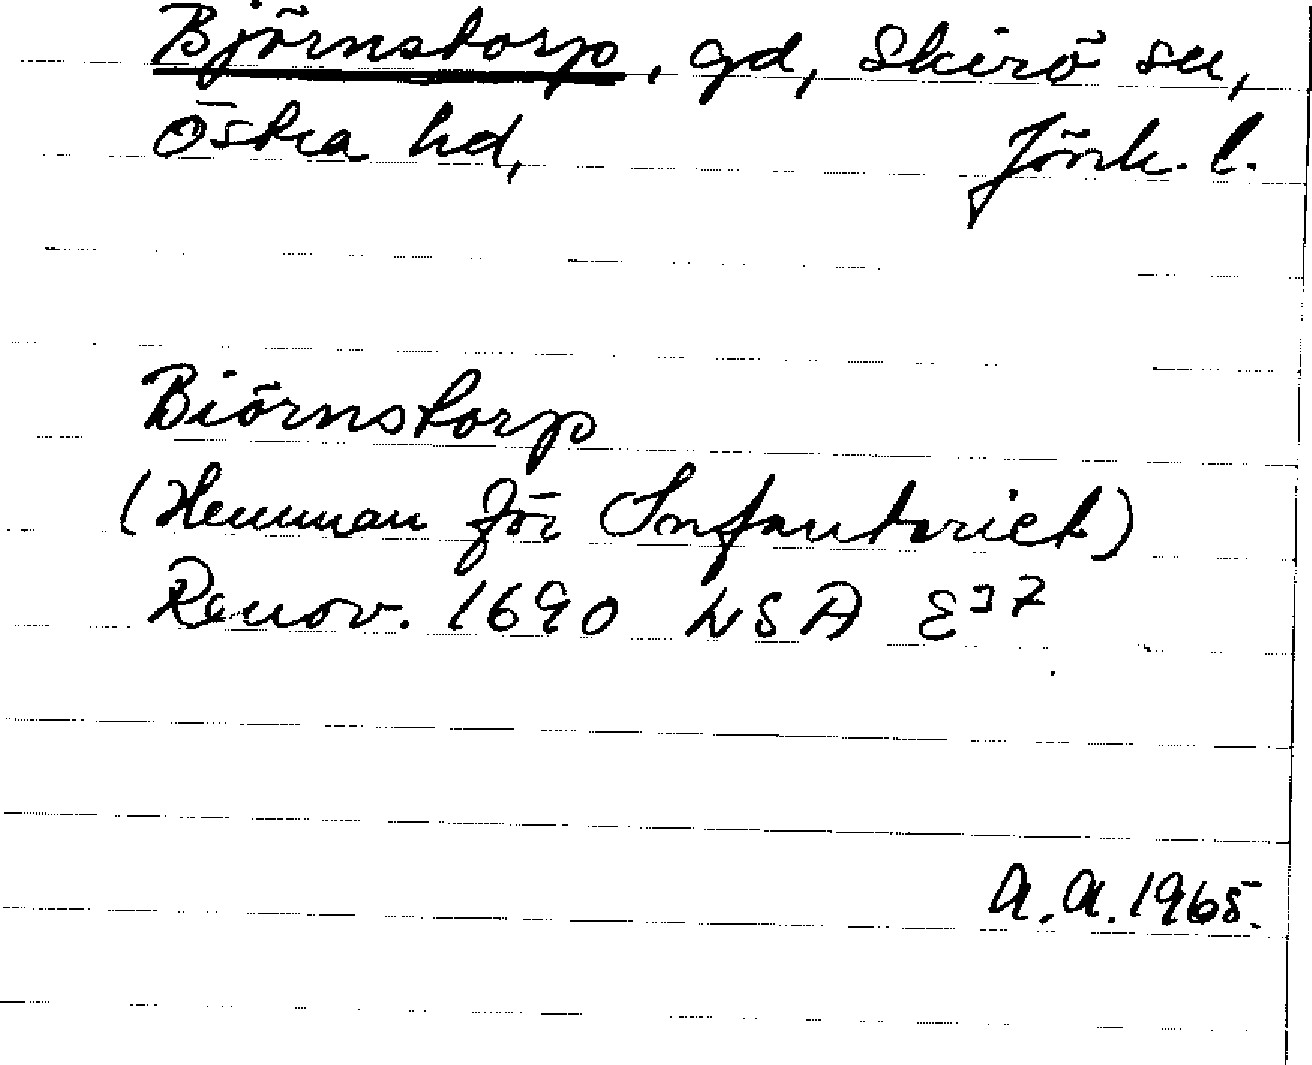 Björnstorp, gd, Skirö sn,
Östra hd, Jönk. l.
Biörnstorp
(Hemman för Infanteriet)
Renov. 1690 LSA E 37
A.A. 1965.